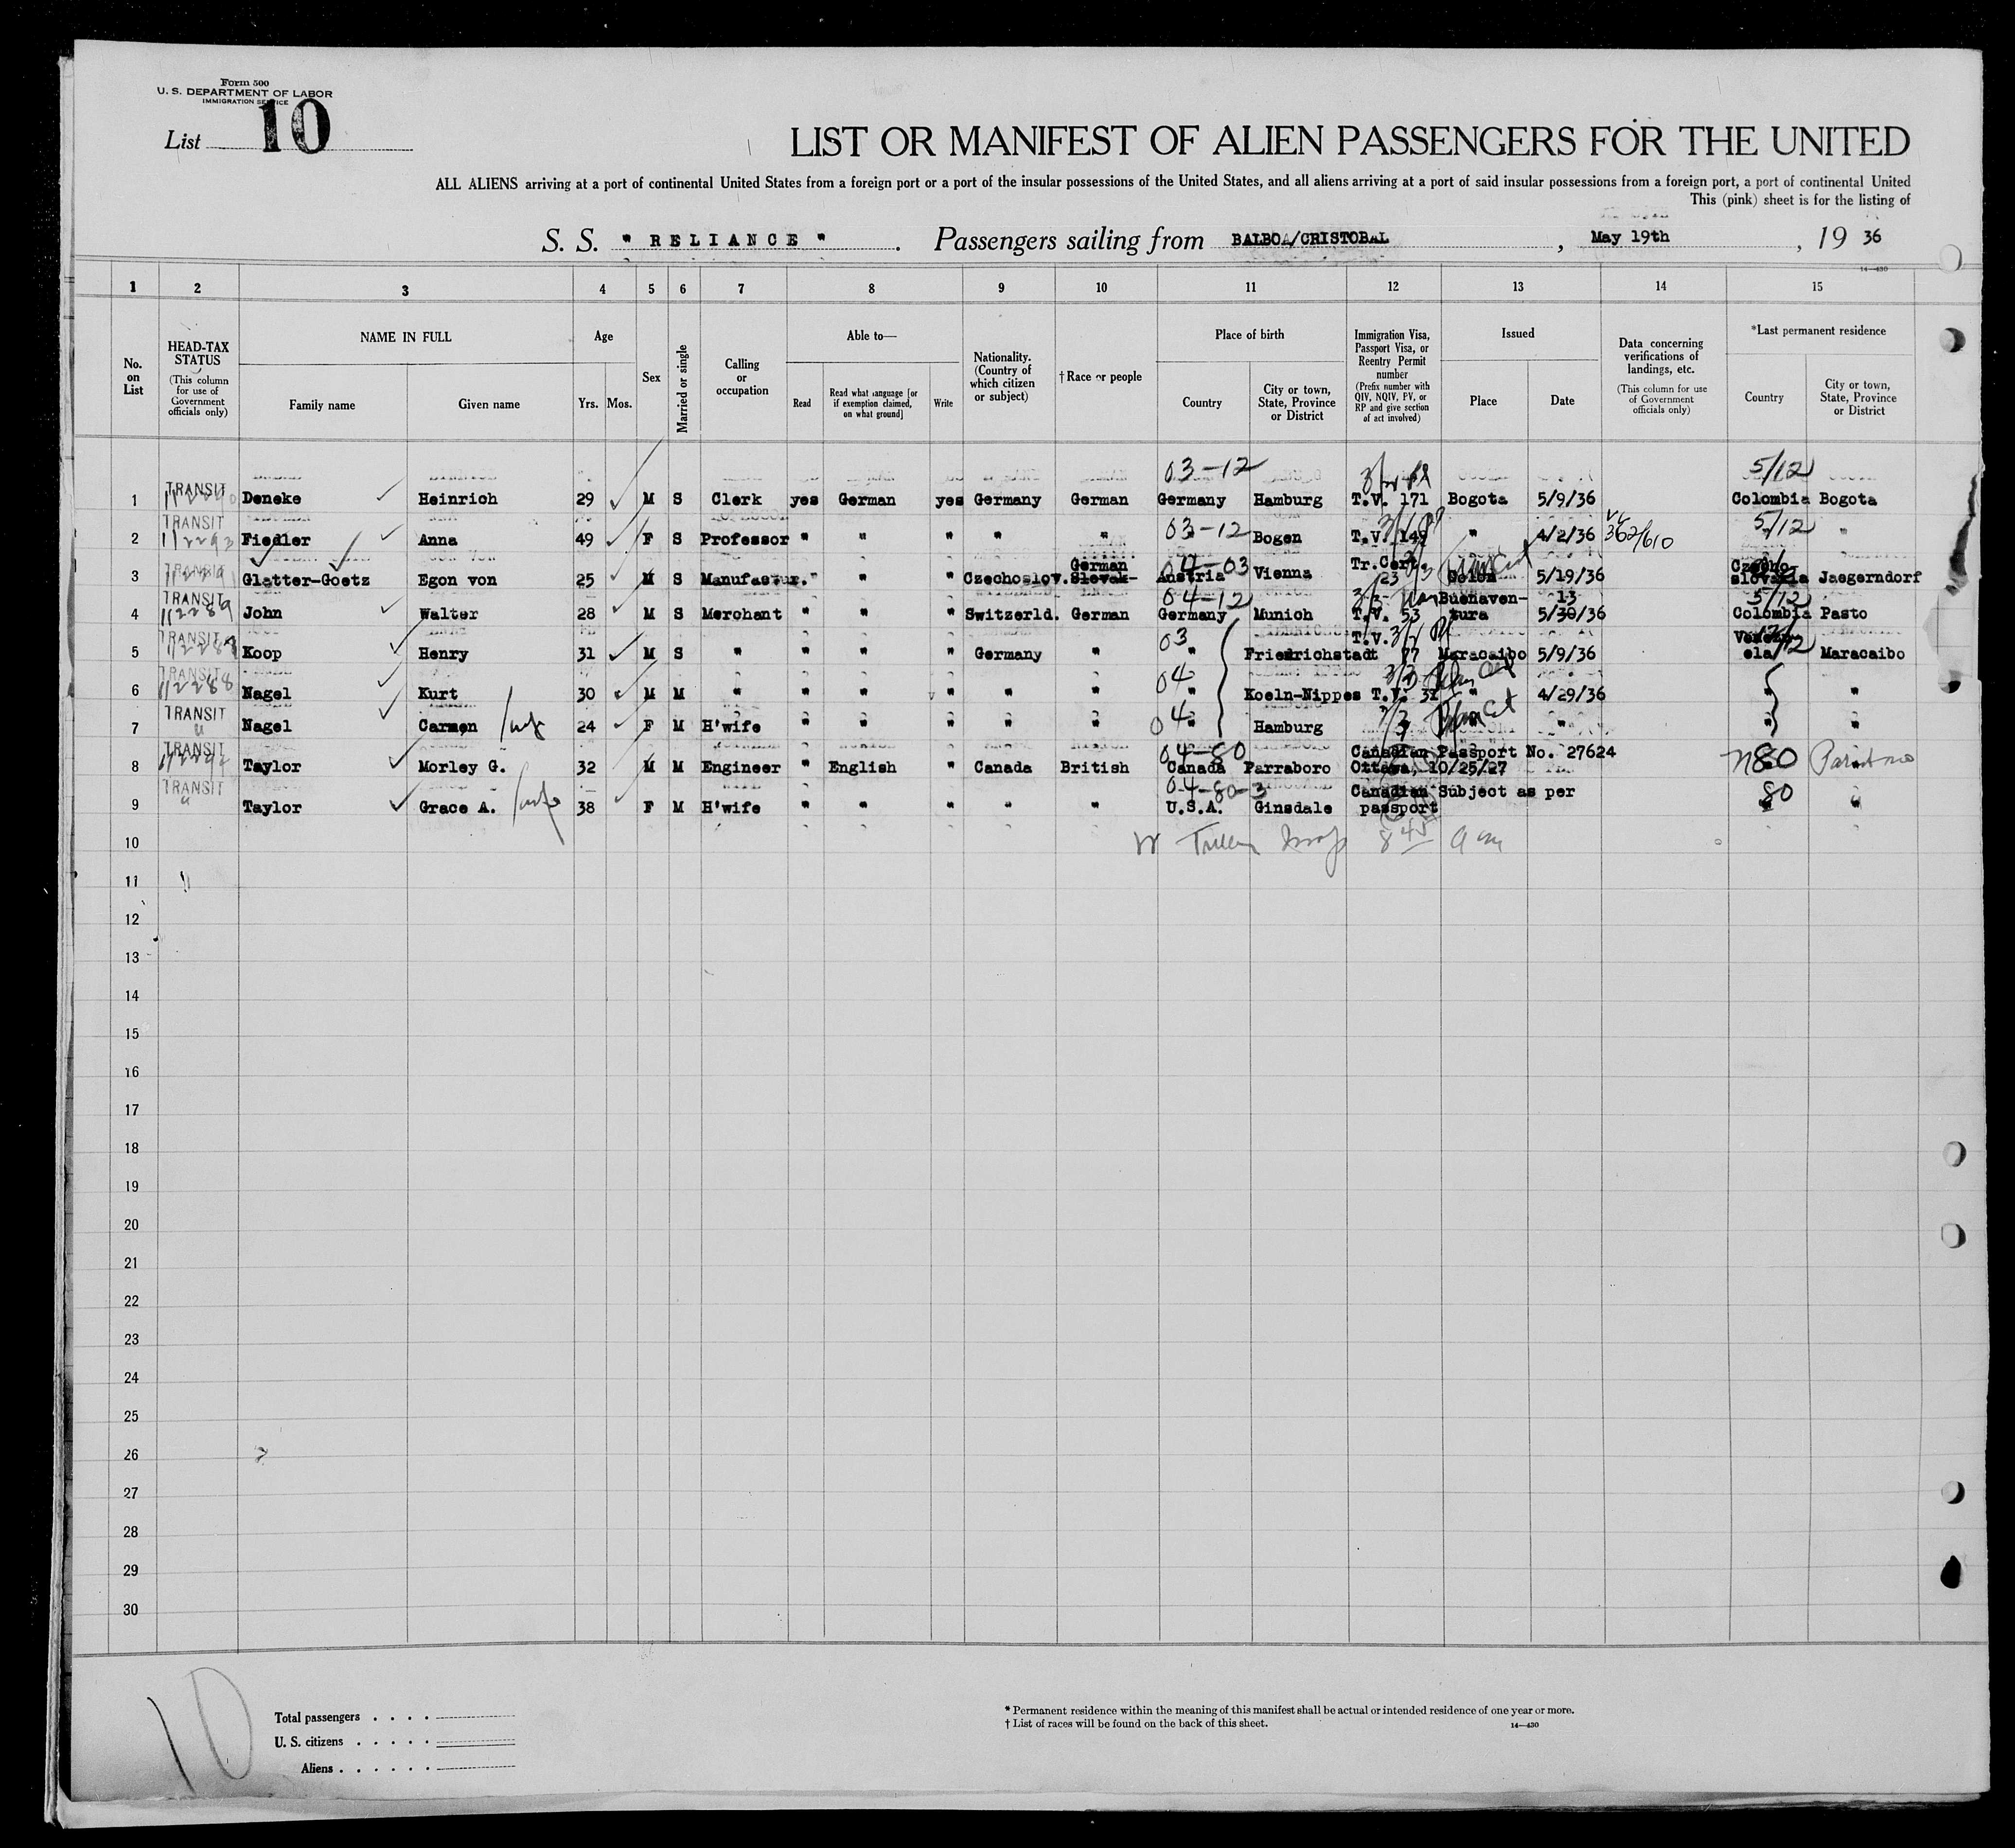 Form 500
U. S. DEPARTMENT OF LABOR
IMMIGRATION SERVICE
List 10
LIST OR MANIFEST OF ALIEN PASSENGERS FOR THE UNITED
ALL ALIENS arriving at a port of continental United States from a foreign port or a port of the insular possessions of the United States, and all aliens arriving at a port of said insular possessions from a foreign port, a port of continental United
This (pink) sheet is for the listing of
S. S. " RELIANCE " . Passengers sailing from BALBOA/CRISTOBAL , May 19th , 19 36
14—430
1 2 3 4 5 6 7 8 9 10 11 12 13 14 15
No. on List
HEAD-TAX STATUS (This column for use of Government officials only)
NAME IN FULL
Family name
Given name
Age
Yrs. Mos.
Sex
Married or single
Calling or occupation
Able to—
Read
Read what language [or if exemption claimed, on what ground]
Write
Nationality. (Country of which citizen or subject)
† Race or people
Place of birth
Country
City or town, State, Province or District
Immigration Visa, Passport Visa, or Reentry Permit number (Prefix number with QIV, NQIV, PV, or RP and give section of act involved)
Issued
Place
Date
Data concerning verifications of landings, etc. (This column for use of Government officials only)
*Last permanent residence
Country
City or town, State, Province or District
03-12 5/12
1 TRANSIT Deneke Heinrich 29 M S Clerk yes German yes Germany German Germany Hamburg T.V. 171 Bogota 5/9/36 Colombia Bogota
03-12 5/12
2 TRANSIT 112293 Fiedler Anna 49 F S Professor " " " " " " Bogen T.V. 149 " 4/2/36 362/610 "
04-03
3 TRANSIT Glatter-Goetz Egon von 25 M S Manufactur. " " " Czechoslov. German Slovak- Austria Vienna Tr.Cert. 23 Colon 5/19/36 Czecho-slovakia Jaegerndorf
04-12 5/12
4 TRANSIT 112289 John Walter 28 M S Merchant " " " Switzerld. German Germany Munich T.V. 53 Buenaven-tura 13 5/30/36 Colombia Pasto
03
5 TRANSIT Koop Henry 31 M S " " " " Germany " " Friedrichstadt T.V. 77 Maracaibo 5/9/36 Venezu-ela Maracaibo
04
6 TRANSIT 112288 Nagel Kurt 30 M M " " " " " " " Koeln-Nippes T.V. 31 " 4/29/36 " "
04
7 TRANSIT " Nagel Carmen wife 24 F M H'wife " " " " " " Hamburg " " " " "
04-80
8 TRANSIT Taylor Morley G. 32 M M Engineer " English " Canada British Canada Parraboro Canadian Passport No. 27624 Ottawa, 10/25/27 80
04-80-3
9 TRANSIT " Taylor Grace A. wife 38 F M H'wife " " " " " U.S.A. Ginsdale Canadian Subject as per passport 80 "
10 8 45
11
12
13
14
15
16
17
18
19
20
21
22
23
24
25
26
27
28
29
30
10
Total passengers . . . .
U. S. citizens . . . . .
Aliens . . . . . .
* Permanent residence within the meaning of this manifest shall be actual or intended residence of one year or more.
† List of races will be found on the back of this sheet.
14—430